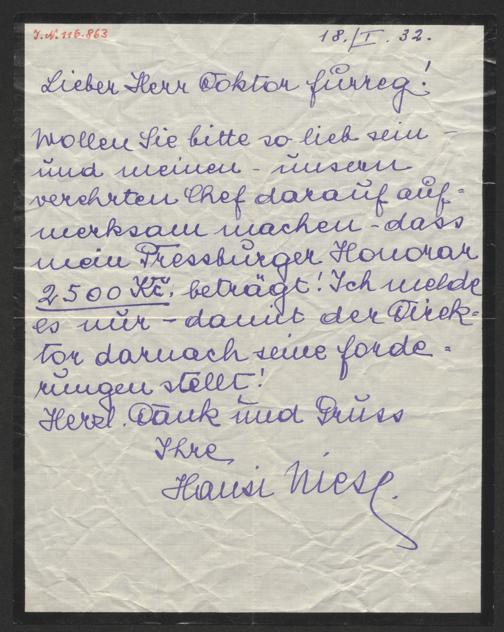 I.N. 116.863
18./I. 32.
Lieber Herr Doktor Fürreg!
Wollen Sie bitte so lieb sein -
und meinen - unsern
verehrten Chef darauf auf-
merksam machen - dass
mein Pressburger Honorar
2500 Kč. beträgt! Ich melde
es nur - damit der Direk-
tor darnach seine forde-
rungen stellt!
Herzl. Dank und Gruss
Ihre
Hansi Niese.